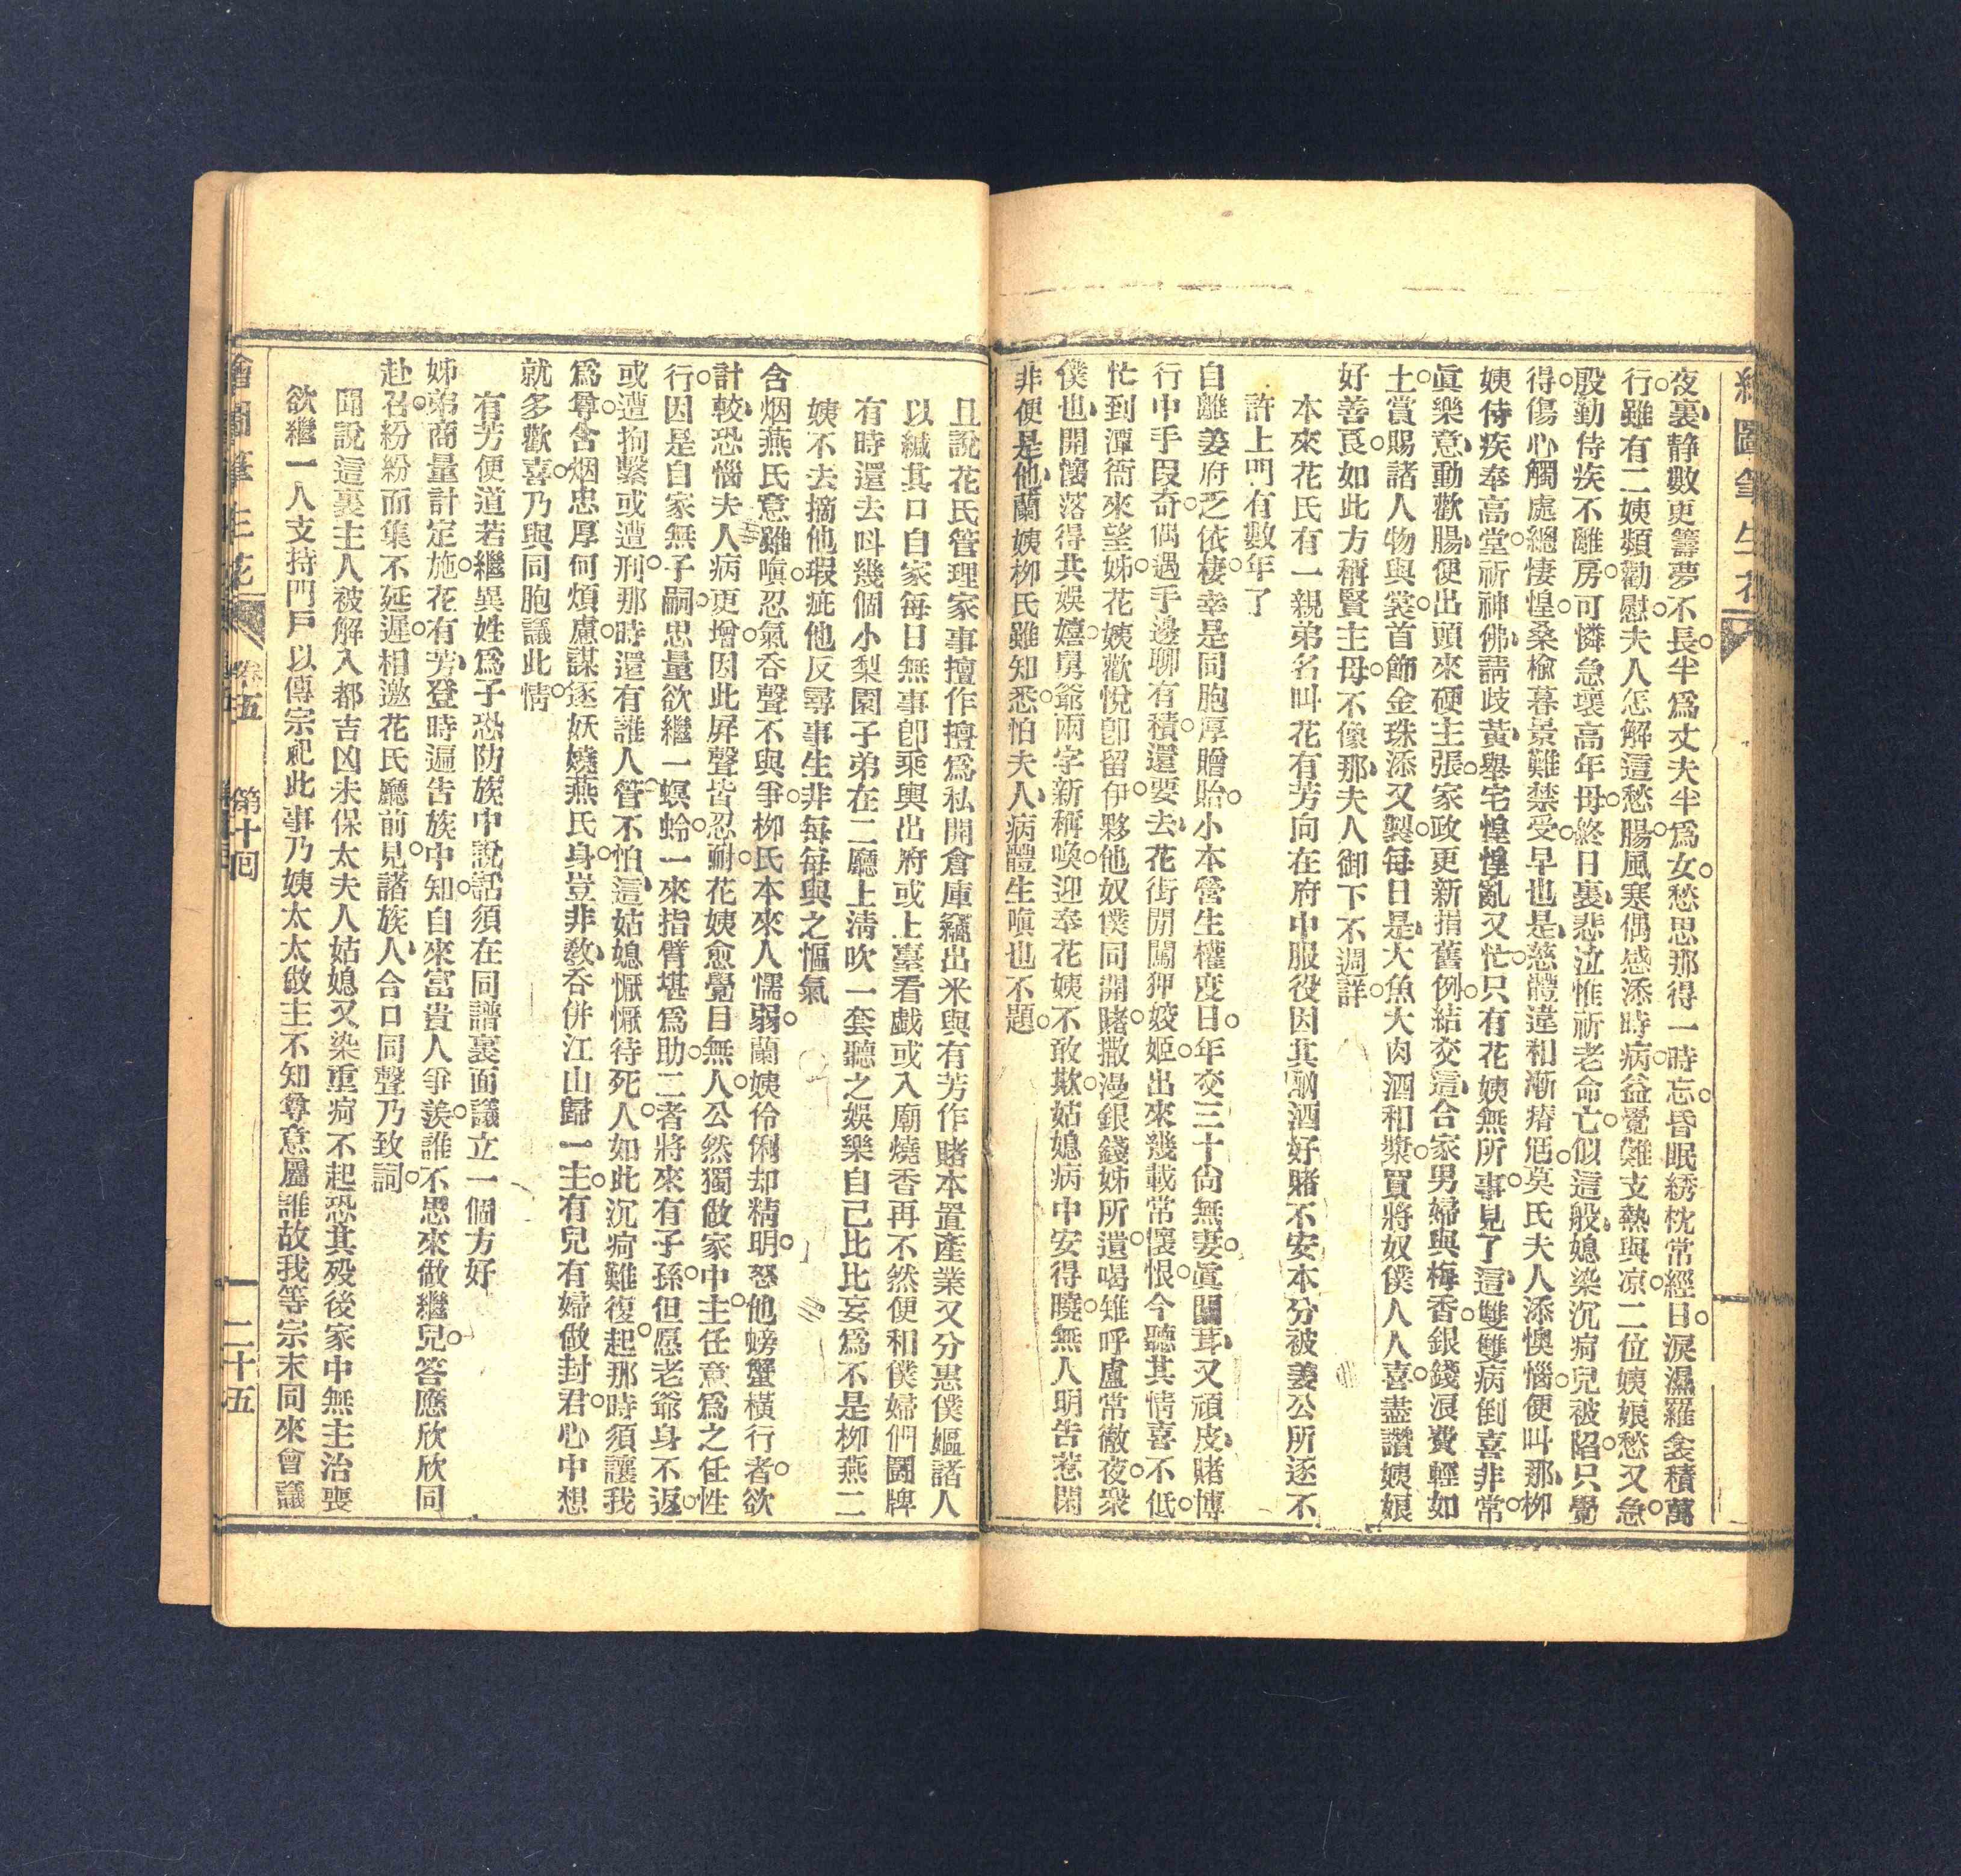 繪圖筆生花
夜裏静數更籌夢不長。半爲丈夫半爲女。愁思那得一時忘。昏眠綉枕常經日。淚濕羅衾積萬
行。雖有二姨頻勸慰。夫人怎解這愁腸。風寒偶感添時病。益覺難支熱與凉。二位姨娘愁又急。
殷勤侍疾不離房。可憐急壞高年母。終日裏、悲泣惟祈老命亡。似這般、媳染沉疴兒被陷。只覺
得。傷心觸處總悽惶。桑榆暮景難禁受。早也是、慈體違和漸瘠尫。莫氏夫人添懊惱。便叫那、柳
姨侍疾奉高堂。祈神佛、請歧黃、舉宅惶惶亂又忙。只有花姨無所事。見了這、雙雙病倒喜非常。
眞樂意、動歡腸、便出頭來硬主張。家政更新捐舊例。結交這、合家男婦與梅香。銀錢浪費輕如
土。賞賜諸人物與裳。首飾金珠添又製。每日是、大魚大肉酒和漿。買將奴僕人人喜。盡讚姨娘
好善良。如此方稱賢主母。不像那、夫人御下不週詳。
本來花氏有一親弟名叫花有芳向在府中服役因其酗酒好賭不安本分被姜公所逐不
許上門有數年了
自離姜府乏依棲。幸是同胞厚贈貽。小本營生權度日。年交三十尙無妻。眞闒茸、又頑皮、賭博
行中手段奇。偶遇手邊聊有積。還要去、花街閒闖狎姣姬。出來幾載常懷恨。今聽其情喜不低。
忙到潭衙來望姊。花姨歡悅卽留伊。夥他奴僕同開賭。撒漫銀錢姊所遺。喝雉呼盧常徹夜。衆
僕也、開懷落得共娛嬉。舅爺兩字新稱喚。迎奉花姨不敢欺。姑媳病中安得曉。無人明告惹閑
非。便是他、蘭姨柳氏雖知悉。怕夫人、病體生嗔也不題。
且說花氏管理家事擅作擅爲私開倉庫竊出米與有芳作賭本置產業又分惠僕嫗諸人
以緘其口自家每日無事卽乘輿出府或上臺看戲或入廟燒香再不然便和僕婦們鬪牌
有時還去呌幾個小梨園子弟在二廳上淸吹一套聽之娛樂自己比比妄爲不是柳燕二
姨不去摘他瑕疵他反尋事生非每每與之慪氣
含烟燕氏意雖嗔。忍氣吞聲不與爭。柳氏本來人懦弱。蘭姨伶俐却精明。怒他螃蟹橫行者。欲
計較、恐惱夫人病更增。因此屏聲皆忍耐。花姨愈覺目無人。公然獨做家中主。任意爲之任性
行。因是自家無子嗣。思量欲繼一螟蛉。一來指臂堪爲助。二者將來有子孫。但愿老爺身不返。
或遭拘繫或遭刑。那時還有誰人管。不怕這、姑媳懨懨待死人。如此沉疴難復起。那時須讓我
爲尊。含烟忠厚何煩慮。謀逐妖嬈燕氏身。豈非教、吞併江山歸一主。有兒有婦做封君。心中想
就多歡喜。乃與同胞議此情。
有芳便道若繼異姓爲子恐防族中說話須在同譜裏面議立一個方好
姊弟商量計定施。花有芳、登時遍告族中知。自來富貴人爭羨。誰不思來做繼兒。答應欣欣同
赴召。紛紛而集不延遲。相邀花氏廳前見。諸族人、合口同聲乃致詞。
聞說這裏主人被解入都吉凶未保太夫人姑媳又染重疴不起恐其歿後家中無主治喪
欲繼一人支持門戶以傳宗祀此事乃姨太太做主不知尊意屬誰故我等宗末同來會議
繪圖筆生花 卷五 第十回 一二十五